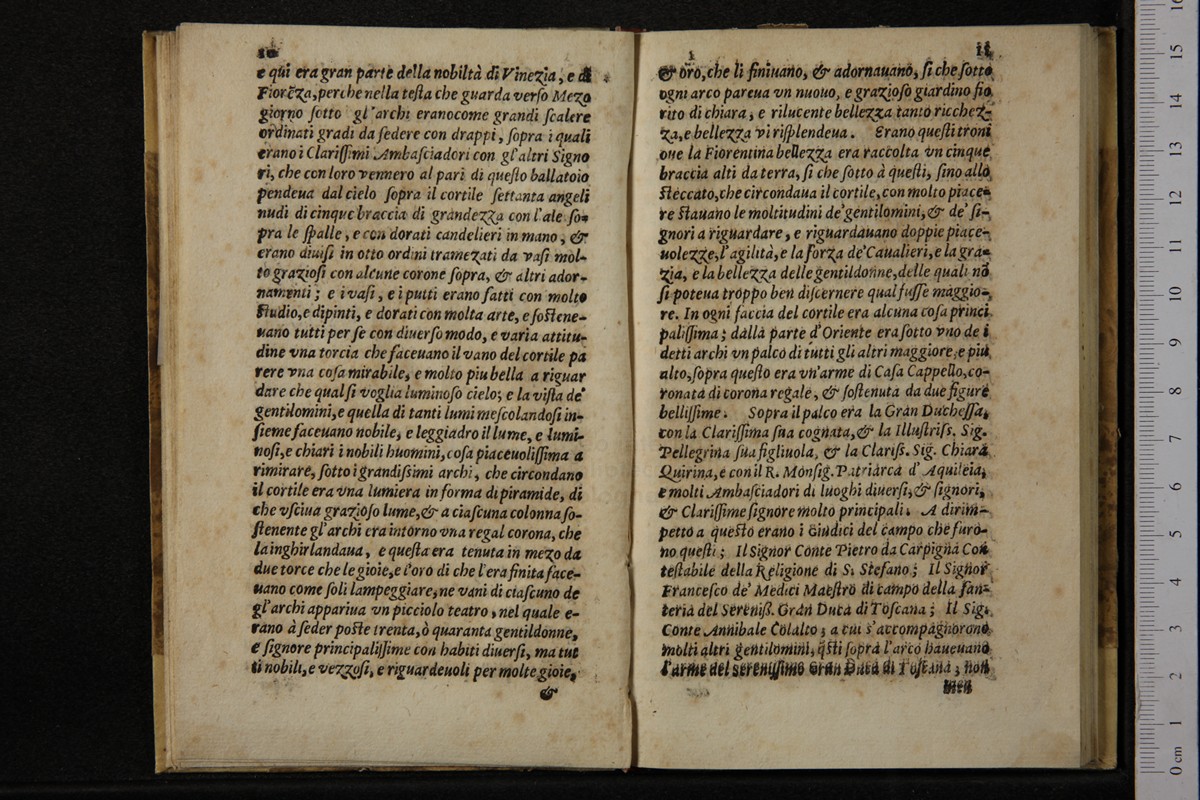 10
e quì era gran parte della nobiltà di Vinezia, e di
Fiorẽza, perche nella teſta che guarda verſo Mezo
giorno ſotto gl'archi eranocome grandi ſcalere
ordinati gradi da ſedere con drappi, ſopra i quali
erano i Clariſſimi Ambaſciadori con gl'altri Signo
ri, che con loro vennero al pari di queſto ballatoio
pendeua dal cielo ſopra il cortile ſettanta angeli
nudi di cinque braccia di grandezza con l'ale ſo-
pra le ſpalle, e con dorati candelieri in mano, &
erano diuiſi in otto ordini tramezati da vaſi mol-
to grazioſi con alcune corone ſopra, & altri ador-
namenti; e i vaſi, e i putti erano fatti con molto
ſtudio, e dipinti, e dorati con molta arte, e ſoſtene-
uano tutti per ſe con diuerſo modo, e varia attitu-
dine vna torcia che faceuano il vano del cortile pa
rere vna coſa mirabile, e molto piu bella a riguar
dare che qualſi voglia luminoſo cielo; e la viſta de'
gentilomini, e quella di tanti lumi meſcolandoſi in-
ſieme faceuano nobile, e leggiadro il lume, e lumi-
noſi, e chiari i nobili huomini, coſa piaceuoliſſima a
rimirare, ſotto i grandiſsimi archi, che circondano
il cortile era vna lumiera in forma di piramide, di
che vſciua grazioſo lume, & a ciaſcuna colonna ſo-
ſtenente gl'archi era intorno vna regal corona, che
la inghirlandaua, e queſta era tenuta in mezo da
due torce che le gioie, e l'oro di che l'era finita face-
uano come ſoli lampeggiare, ne vani di ciaſcuno de
gl'archi appariua vn picciolo teatro, nel quale e-
rano à ſeder poſte trenta, ò quaranta gentildonne,
e ſignore principaliſſime con habiti diuerſi, ma tut
ti nobili, e vezzoſi, e riguardeuoli per molte gioie,
&
11
& oro, che li finiuano, & adornauano, ſi che ſotto
ogni arco pareua vn nuouo, e grazioſo giardino fio
rito di chiara, e rilucente bellezza tanto ricchez-
za, e bellezza vi riſplendeua. Erano queſti troni
oue la Fiorentina bellezza era raccolta vn cinque
braccia alti da terra, ſi che ſotto à queſti, ſino allo
ſteccato, che circondaua il cortile, con molto piace-
re ſtauano le moltitudini de'gentilomini, & de' ſi-
gnori a riguardare, e riguardauano doppie piace-
uolezze, l'agilità, e la forza de'Caualieri, e la gra-
zia, e la bellezza delle gentildonne, delle quali nō
ſi poteua troppo ben diſcernere qual fuſſe maggio-
re. In ogni faccia del cortile era alcuna coſa princi
paliſſima; dalla parte d'Oriente era ſotto vno de i
detti archi vn palco di tutti gli altri maggiore, e piu
alto, ſopra queſto era vn'arme di Caſa Cappello, co-
ronata di corona regale, & ſoſtenuta da due figure
belliſſime. Sopra il palco era la Gran Ducheſſa,
con la Clariſſima ſua cognata, & la Illuſtriſs. Sig.
Pellegrina ſua figliuola, & la Clariſs. Sig. Chiara
Quirina, e con il R. Monſig. Patriarca d'Aquileia,
e molti Ambaſciadori di luoghi diuerſi, & ſignori,
& Clariſſime ſignore molto principali. A dirim-
petto a queſto erano i Giudici del campo che furo-
no queſti; Il Signor Conte Pietro da Carpigna Con
teſtabile della Religione di S. Stefano; Il Signor
Franceſco de' Medici Maeſtro di campo della fan-
teria del Sereniſs. Gran Duca di Toſcana; Il Sig.
Conte Annibale Colalto; a cui s'accompagnorono
molti altri gentilomini, q̃ſti ſopra l'arco haueuano
l'arme del ſereniſſimo Gran Duca di Toſcana; non
men